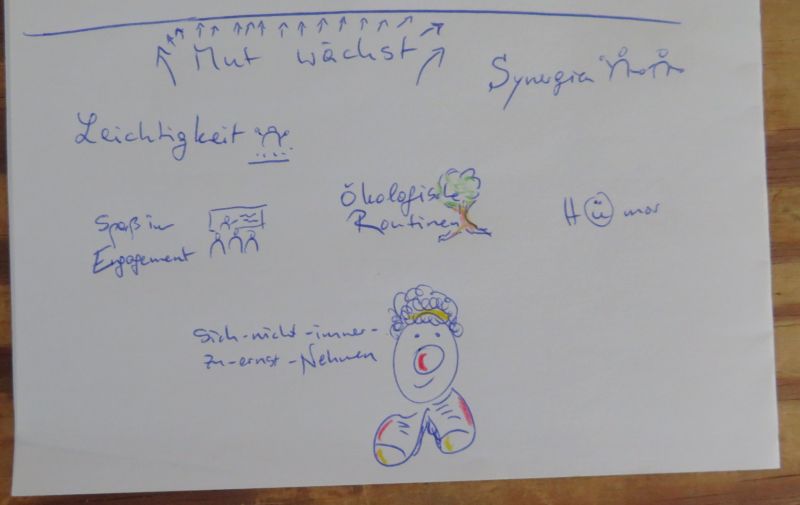 Mut wächst
Synergien
Leichtigkeit
Ökologische
Routinen
Hümor
Spaß im
Engagement
Sich-nicht-immer-
zu-ernst-Nehmen